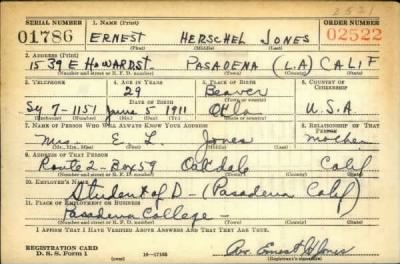 2521
SERIAL NUMBER 1. NAME (Print) ORDER NUMBER
01786 ERNEST HERSCHEL JONES 02522
(First) (Middle) (Last)
2. ADDRESS (Print)
1539 E HOWARD ST. PASADENA (L.A) CALIF
(Number and street or R. F. D. number) (Town) (County) (State)
3. TELEPHONE 4. AGE IN YEARS 5. PLACE OF BIRTH 6. COUNTRY OF CITIZENSHIP
29 Beaver
DATE OF BIRTH
Sy 7-1151 June 5 1911 Okla U.S.A
(Exchange) (No.) (Mo.) (Day) (Yr.) (State or country)
7. NAME OF PERSON WHO WILL ALWAYS KNOW YOUR ADDRESS 8. RELATIONSHIP OF THAT PERSON
Mrs E. L. Jones mother
(Mr., Mrs., Miss) (First) (Middle) (Last)
9. ADDRESS OF THAT PERSON
Route 2-Box 59 Oakdale Calif
(Number and street or R. F. D. number) (Town) (County) (State)
10. EMPLOYER'S NAME
Student of D - (Pasadena Calif)
11. PLACE OF EMPLOYMENT OR BUSINESS
Pasadena College -
(Number and street or R. F. D. number) (Town) (County) (State)
I AFFIRM THAT I HAVE VERIFIED ABOVE ANSWERS AND THAT THEY ARE TRUE.
REGISTRATION CARD
D. S. S. Form 1 16-17105 Ernest H Jones
(Registrant's signature)